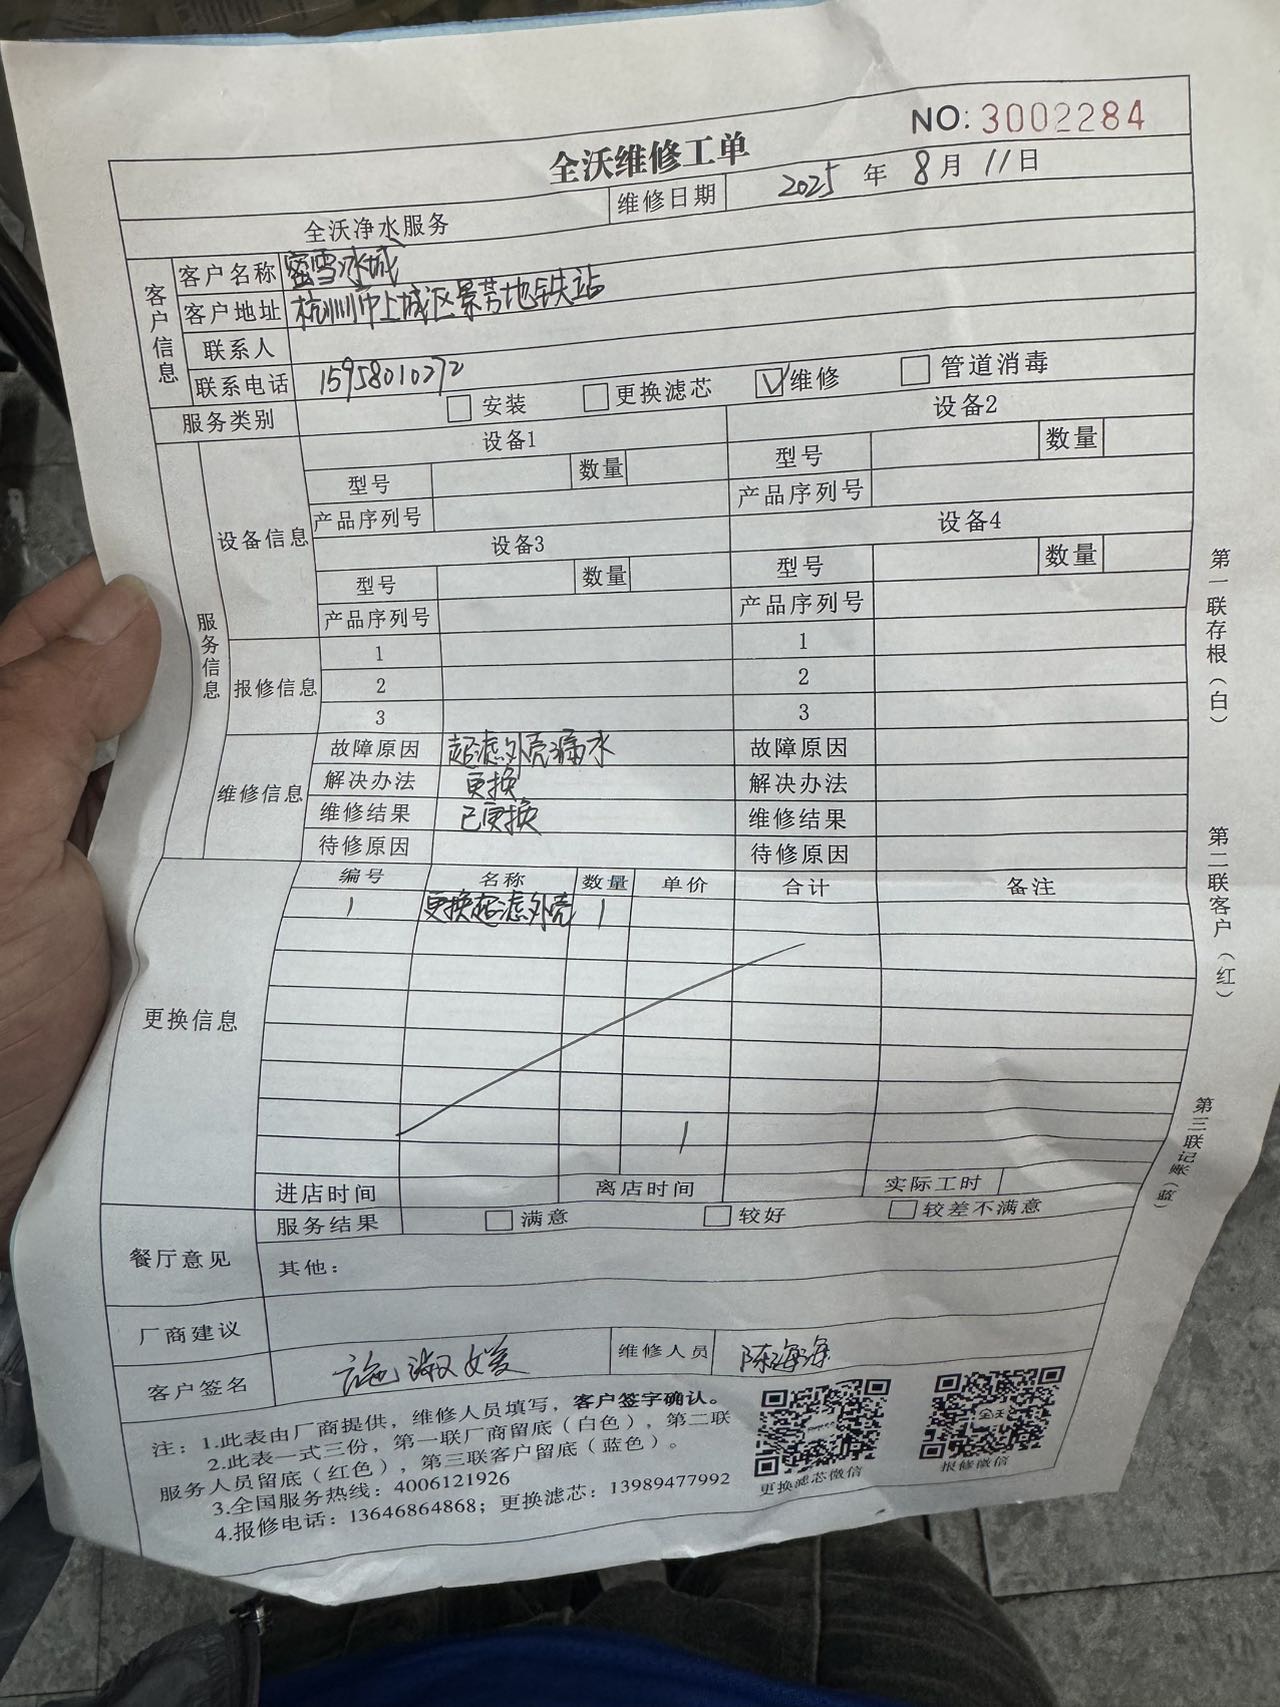 NO: 3002284
全沃维修工单
全沃净水服务 维修日期 2025 年 8 月 11 日
客户信息
客户名称 蜜雪冰城
客户地址 杭州市上城区景芳地铁站
联系人
联系电话 15958010272
服务类别 安装 更换滤芯 维修 管道消毒
服务信息
设备信息
设备1 设备2
型号 数量 型号 数量
产品序列号 产品序列号
设备3 设备4
型号 数量 型号 数量
产品序列号 产品序列号
报修信息
1 1
2 2
3 3
维修信息
故障原因 超滤外壳漏水 故障原因
解决办法 更换 解决办法
维修结果 已更换 维修结果
待修原因 待修原因
更换信息
编号 名称 数量 单价 合计 备注
1 更换超滤外壳 1
进店时间 离店时间 实际工时
餐厅意见
服务结果 满意 较好 较差不满意
其他：
厂商建议
客户签名 施淑媛 维修人员 陈海海
注：1.此表由厂商提供，维修人员填写，客户签字确认。
2.此表一式三份，第一联厂商留底（白色），第二联
服务人员留底（红色），第三联客户留底（蓝色）。
3.全国服务热线：4006121926
4.报修电话：13646864868；更换滤芯：13989477992
更换滤芯微信
全沃
报修微信
第一联存根（白）
第二联客户（红）
第三联记账（蓝）